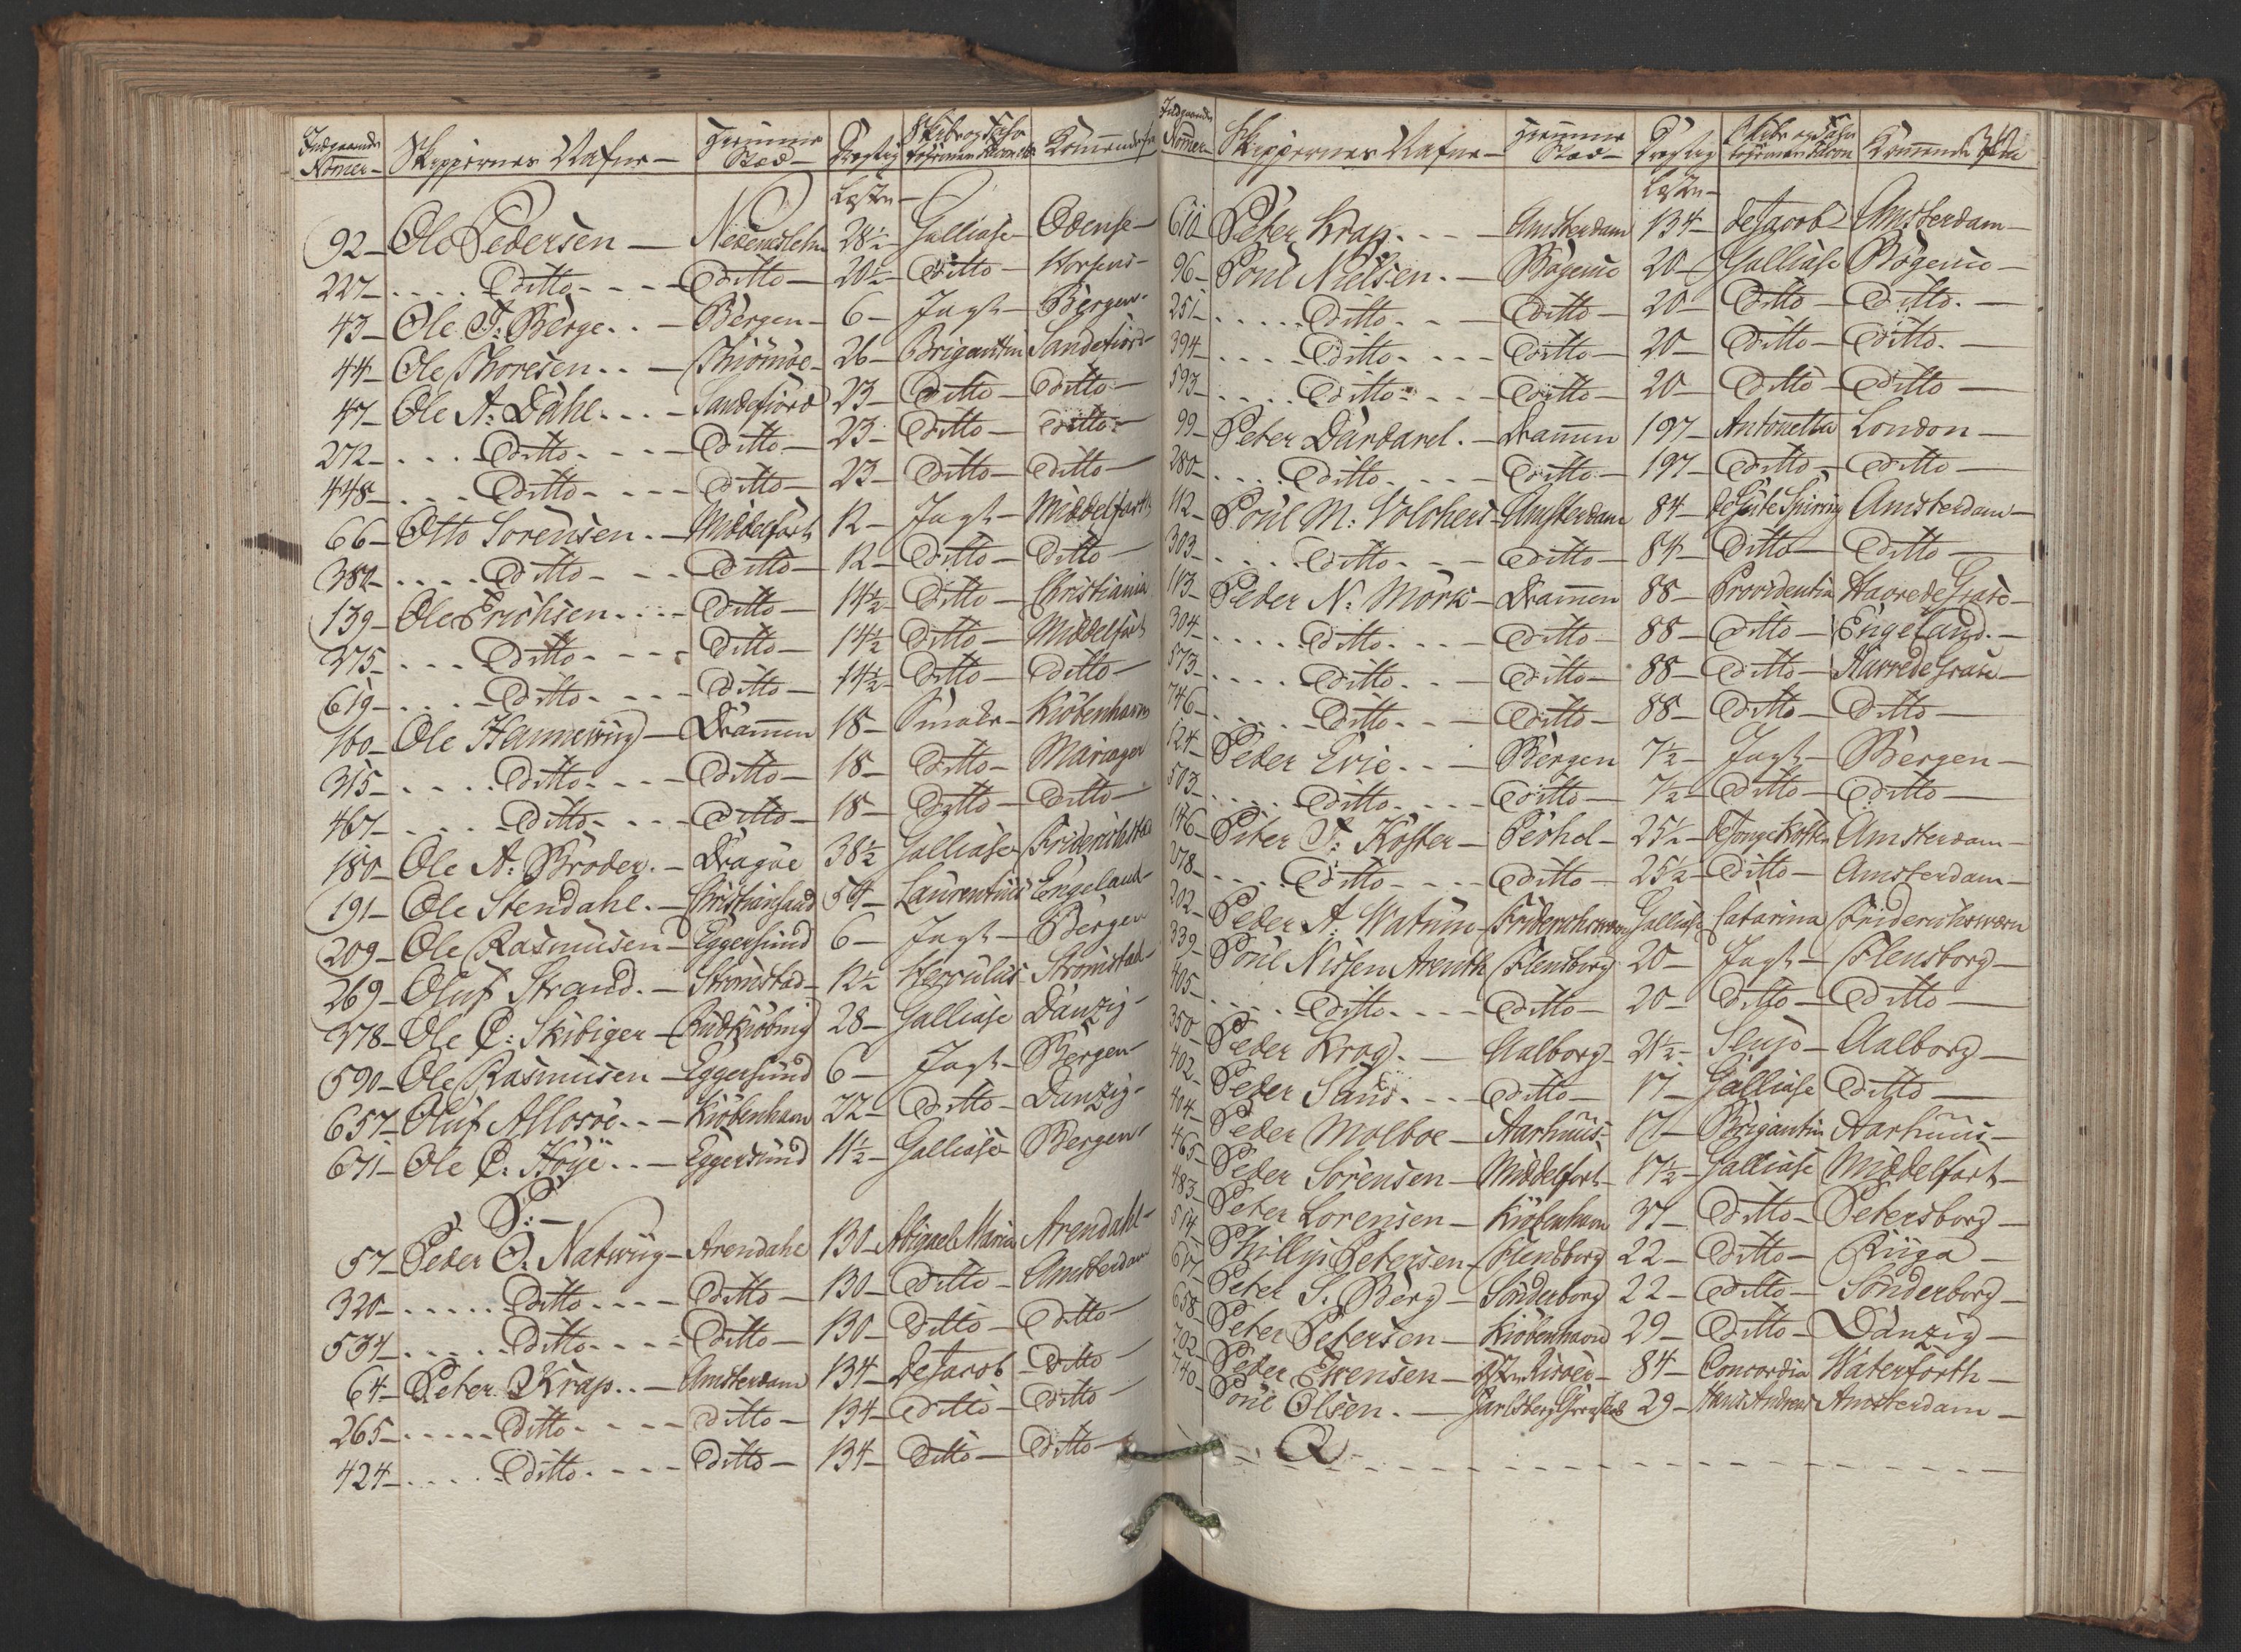 Indgaaende Nomer - Skippernes Nafne - Hiemme Sted - Drægtig Kommende fra
Læster -
92 - Ole Pedersen - 28½ - Galliase - Odense -
227 - Ditto - Ditto - 20½ - Ditto - Horsens -
43 - Ole T: Berge - Bergen - 6 - Jagt - Bergen -
44 - Ole Thoresen - Thiömöe - 26 - Brigantin Sandefiord -
47 - Ole A: Dahl - Sandefiord 23 - Ditto - Ditto -
272 - Ditto - Ditto - 23 - Ditto - Ditto -
448 - Ditto - Ditto - 23 - Ditto - Ditto -
66 - Otto Sörensen - Middelfart 12 - Jagt - Middelfarth
382 - Ditto - Ditto - 12 - Ditto - Ditto -
139 - Ole Erichsen - Ditto - 14½ - Ditto - Christiania
375 - Ditto - Ditto - 14½ Ditto - Middelfart
619 - Ditto - Ditto - 14½ - Ditto - Ditto -
160 - Ole Hannevig - Dramen 18 - Smake - Kiöbenhavn
315 - Ditto - Ditto - 18 - Ditto - Mariager
467 - Ditto - Ditto - 18 - Ditto - Ditto -
180 - Ole A: Broder - Dragöe 38½ Galliase Friderichstad
191 - Ole Stendahl - Christiansand 54 - Laurentius Engeland -
209 - Ole Rasmusen - Eggersund 6 - Jagt - Bergen
269 - Oluf Strand - Strömstad - 12½ Herculus Strömstad -
378 - Ole C: Skibiger - Rudkiöbing 28 - Galliase Danzig -
590 - Ole Rasmusen - Eggersund 6 - Jagt - Bergen -
657 - Oluf - Kiöbenhavn 22 - Ditto - Danzig -
671 - Ole C: Höÿe - Eggersund 11½ - Galliase Bergen -
P: -
57 - Peder O: Natwiig - Arendahl 130 - Abigael Maria Arendahl -
320 - Ditto - Ditto - 130 - Ditto - Amsterdam
534 - Ditto - Ditto - 130 - Ditto - Ditto -
64 - Peter Krap - Amsterdam 134 - De Jacob - Ditto -
265 - Ditto - Ditto - 134 - Ditto - Ditto
424 - Ditto - Ditto - 134 - Ditto - Ditto -
Indgaaende Nomer - Skippernes Nafne - Hiemme Sted - Drægtig Kommende fra
Læster -
610 - Peter Krap - Amsterdam 134 - de Jacob - Amsterdam -
96 - Poul Nielsen - Bogense 20 - Galliase Bogense -
251 - Ditto - Ditto - 20 - Ditto - Ditto -
394 - Ditto - Ditto - 20 - Ditto - Ditto -
593 - Ditto - Ditto - 20 - Ditto - Ditto -
99 - Peter - Dramen 197 - Antonetta London -
280 - Ditto - Ditto - 197 - Ditto - Ditto -
112 - Poul M: Volchers - Amsterdam 84 - Amsterdam -
303 - Ditto - Ditto - 84 - Ditto - Ditto -
113 - Peder N: Mörk - Dramen 88 - Providentia Havre de Grace -
304 - Ditto - Ditto - 88 - Ditto - Engeland -
573 - Ditto - Ditto - 88 - Ditto - Havre de Grace -
746 - Ditto - Ditto - 88 - Ditto - Ditto -
124 - Peder Evie - Bergen 7½ - Jagt - Bergen -
503 - Ditto - Ditto - 7½ - Ditto - Ditto -
146 - Piter Koster - 25½ - Amsterdam -
278 - Ditto - Ditto - 25½ - Ditto - Amsterdam -
202 - Peder A: Watum - Galliase Catarina Friderichsværn
339 - Poul Nissen Flensborg 20 - Jagt - Flensborg -
405 - Ditto - Ditto - 20 - Ditto - Ditto -
350 - Peder Krag - Aalborg - 21½ - Slup - Aalborg -
402 - Peder - Ditto - 17 - Galliase Ditto -
404 - Peder Molboe - Aarhuus - 17 - Brigantin Aarhuus -
465 - Peder Sörensen - Middelfart - 17½ - Galliase Middelfart -
483 - Peter Lorensen - Kiöbenhavn 37 - Ditto - Petersborg -
514 - Phillip Petersen - Flensborg 22 - Ditto - Riiga -
617 - Peter S. Berg - Sönderborg 22 - Ditto - Sönderborg -
658 - Peter Petersen - Kiöbenhavn 29 - Ditto - Danzig -
702 - Peder - 84 - Concordia Waterforth -
740 - Poul Olsen - 29 - Hans Andreas Amsterdam -
Q -